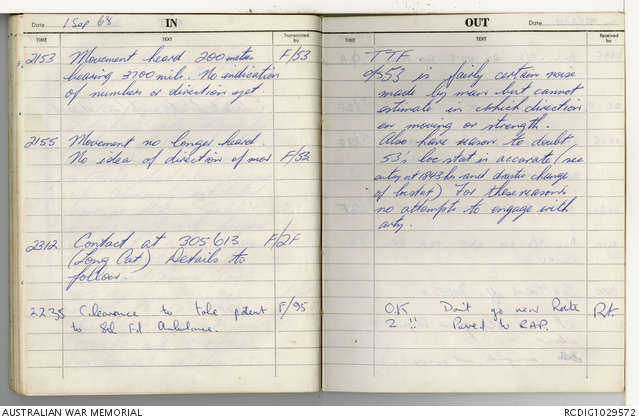 1 Sep 68
IN
OUT
Date
TIME
TEXT
Transmitted by
TIME
TEXT
Received by
2153 Movement heard 200 metres F/53
bearing 3700 mils. No indication
of numbers or direction yet
2155 Movement no longer heard.
No idea of direction of mov F/53
2312 Contact at 305613 F/2F
(Long Cat) Details to
follow.
2235 Clearance to take patient F/95
to 8th Fd Ambulance.
TTF
53 is fairly certain noise
made by man but cannot
estimate in which direction
en moving or strength.
Also have reason to doubt
53's loc stat is accurate (see
entry at 1843 hrs and drastic change
of locstat) For these reasons
no attempts to engage with
arty.
O.K Don't go near Route
2 !! Passed to RAP.
AUSTRALIAN WAR MEMORIAL
RCDIG1029572